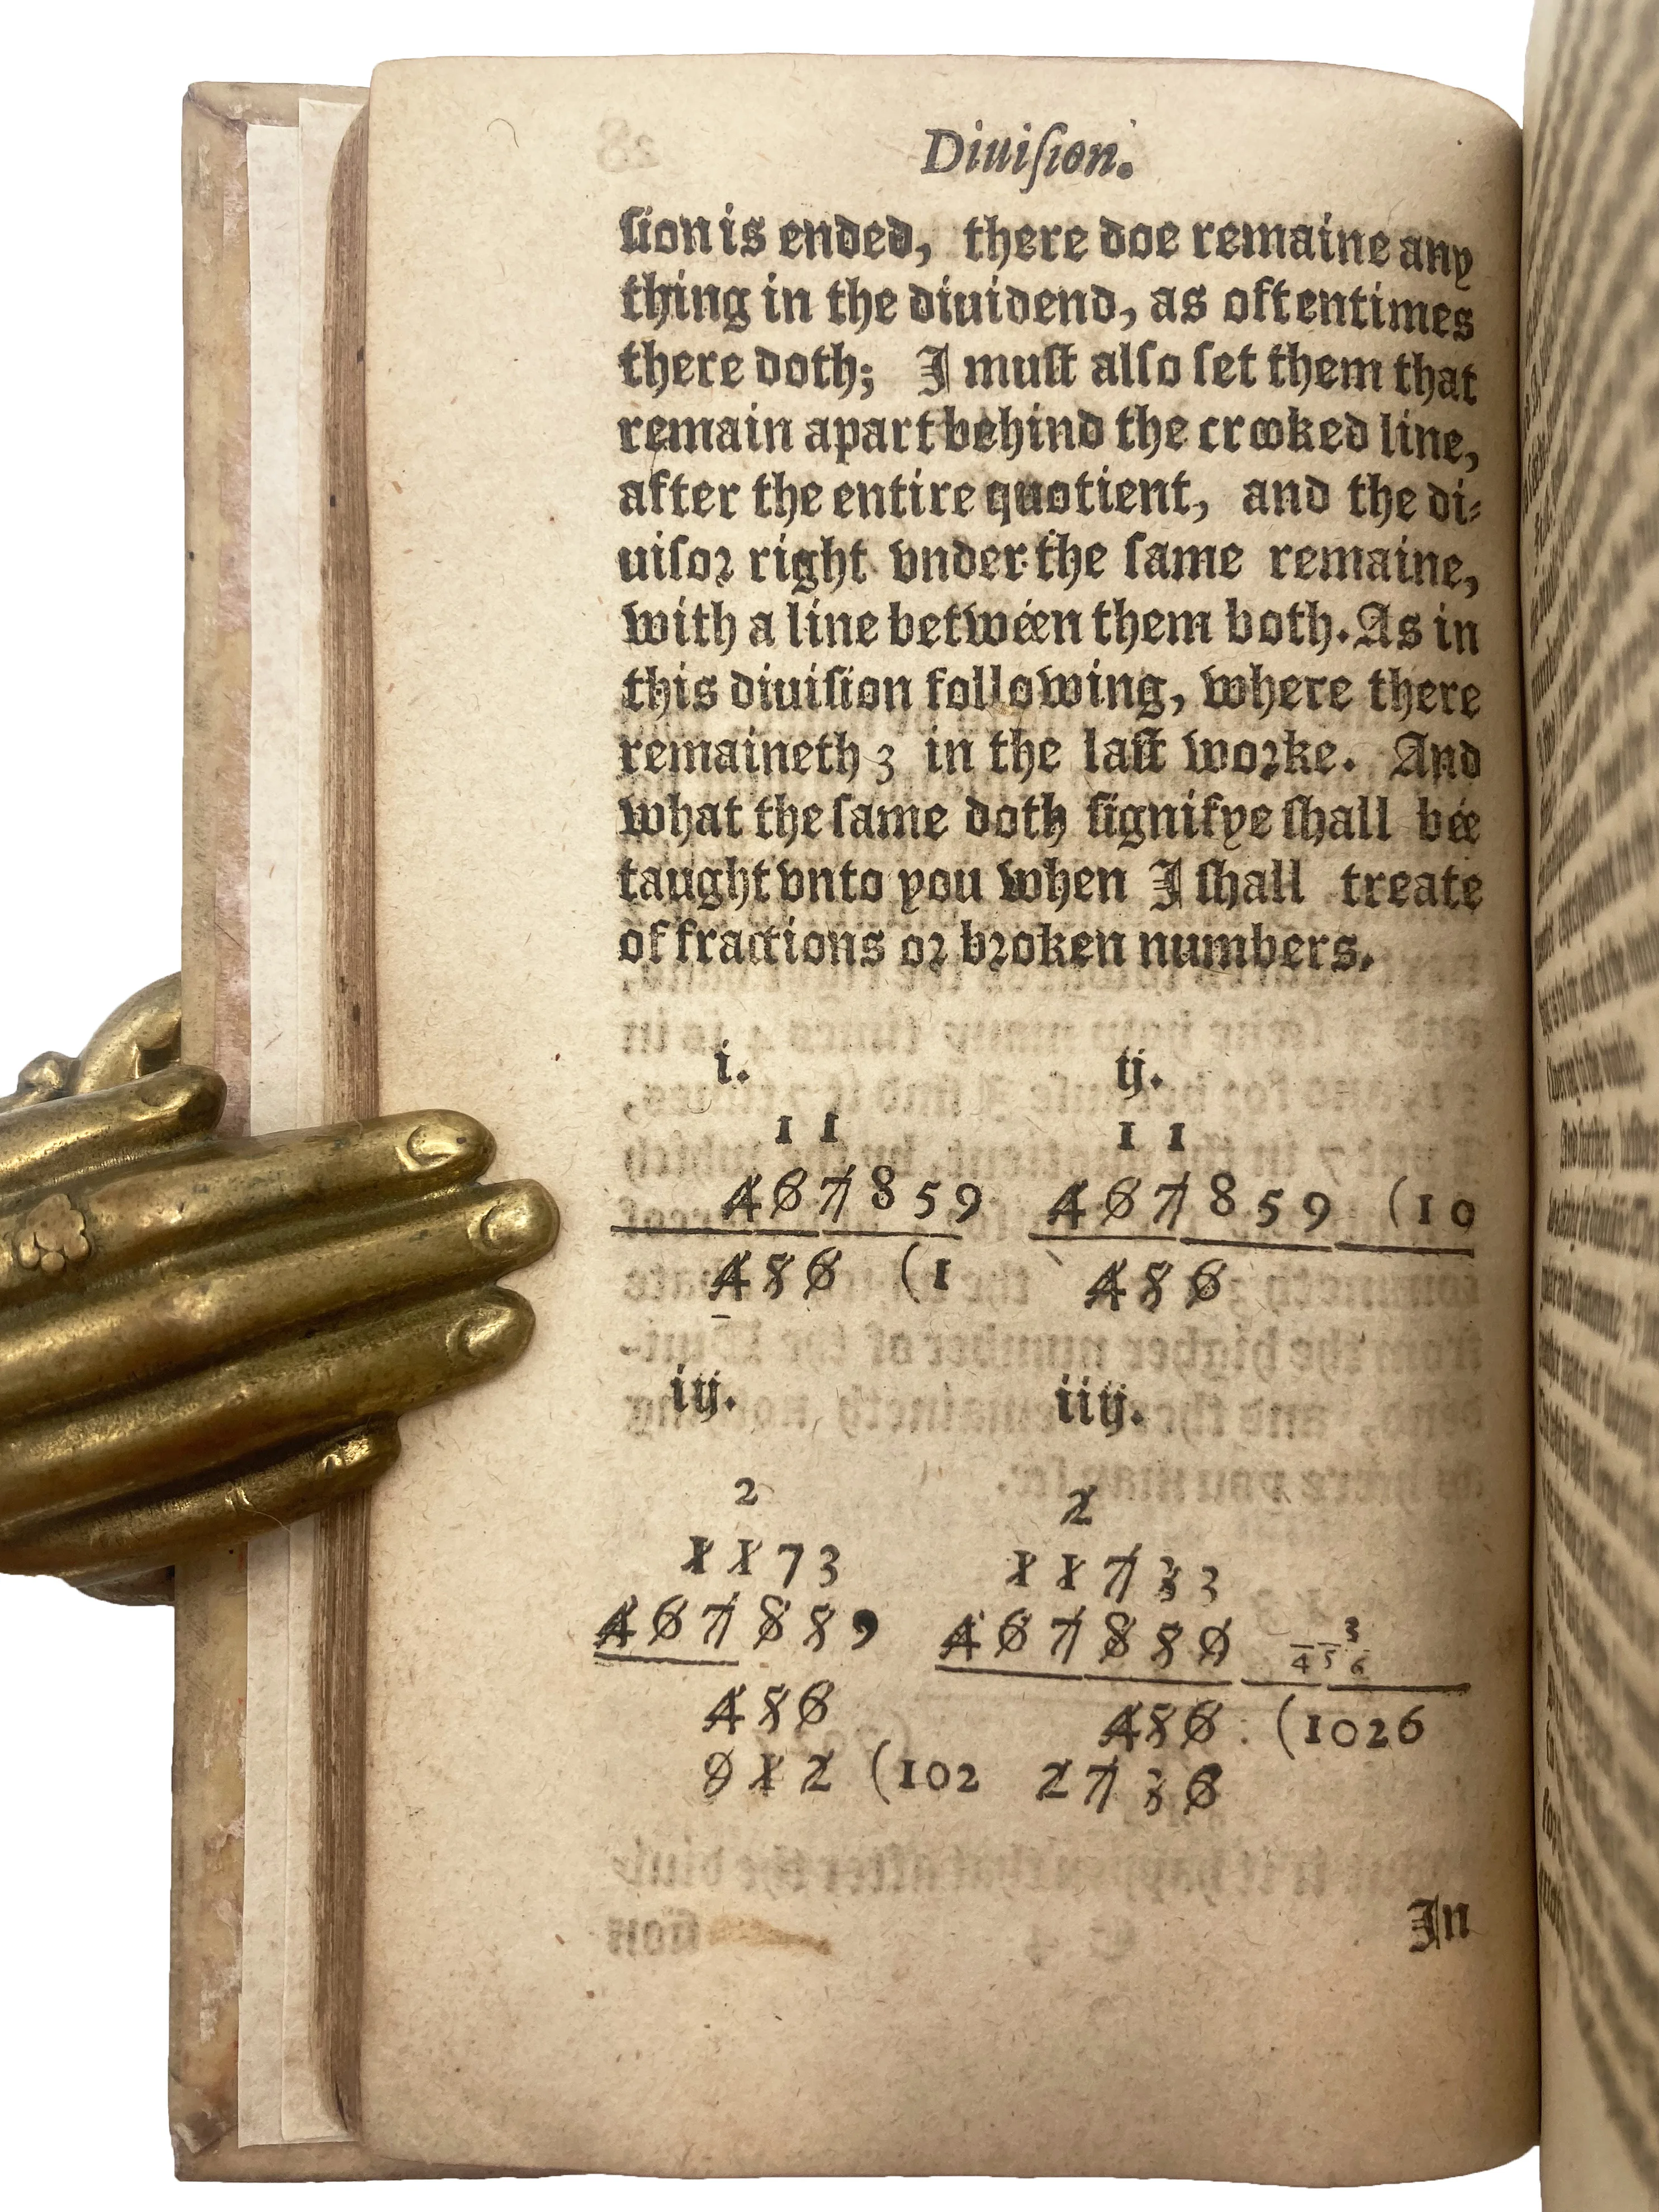 Diuiſion.
ſion is ended, there doe remaine any
thing in the diuidend, as oftentimes
there doth; I muſt alſo ſet them that
remain apart behind the crooked line,
after the entire quotient, and the di⸗
uiſoꝛ right vnder the ſame remaine,
with a line betwéen them both. As in
this diuiſion following, where there
remaineth 3 in the laſt woꝛke. And
what the ſame doth ſignifye ſhall bée
taught vnto you when I ſhall treate
of fractions oꝛ bꝛoken numbers.
i. ij.
1 1 1 1
4 6 7 8 5 9 4 6 7 8 5 9 (1 0
4 5 6 (1 4 5 6
iij. iiij.
2 2
1 1 7 3 1 1 7 3 3
4 6 7 8 5 9 4 6 7 8 5 9 3
4 5 6
4 5 6 4 5 6 (1026
9 1 2 (102 2 7 3 6
In